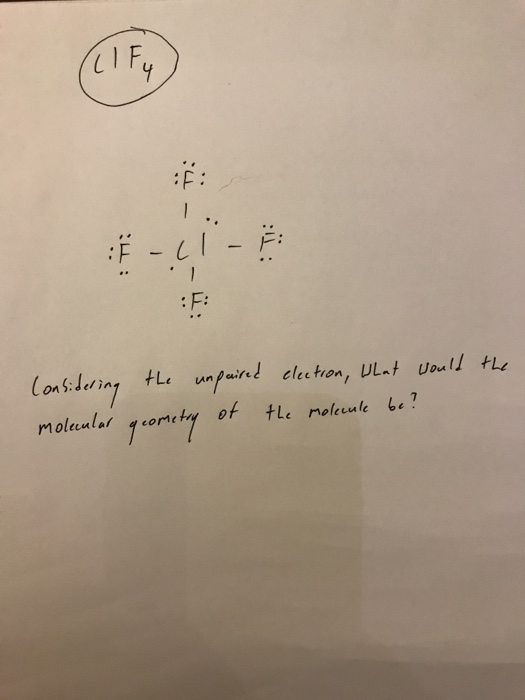 ClF4
:F:
:F - Cl - F:
:F:
Considering the unpaired electron, What would the
molecular geometry of the molecule be?